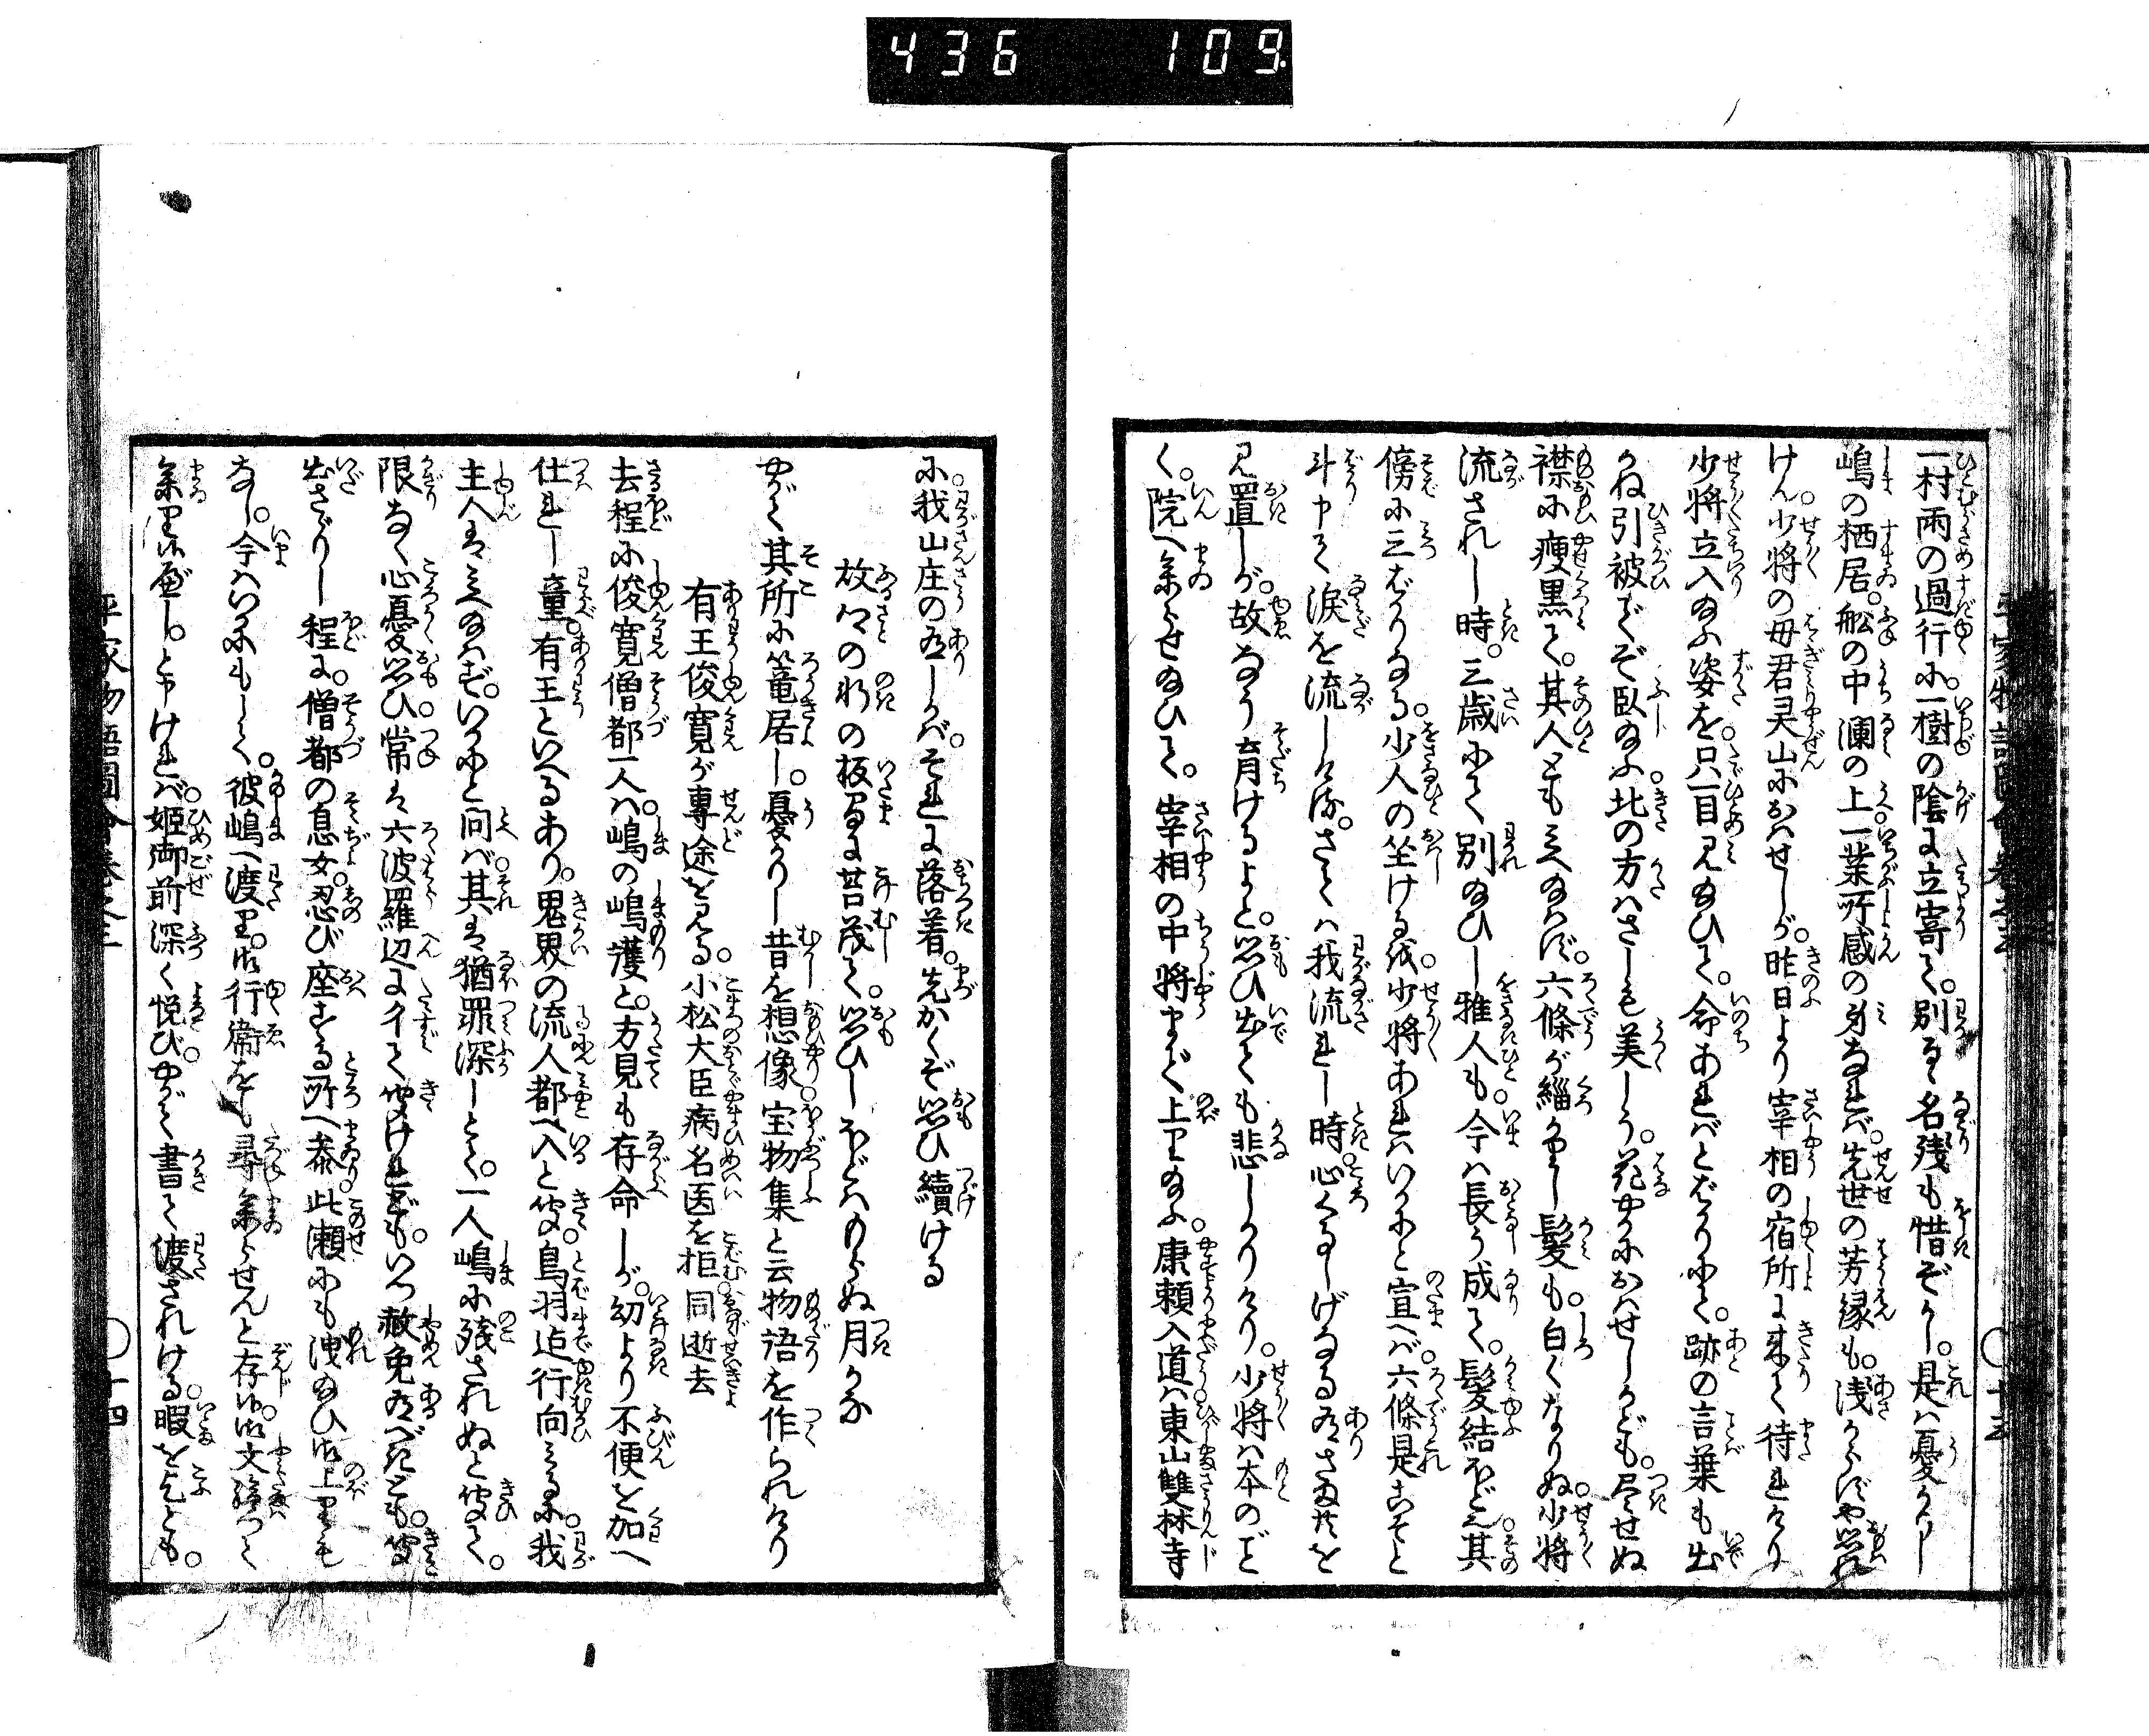 436 109.
一村雨の過行に。一樹の陰に立寄て。別るゝ名残も惜ぞかし。是ハ憂かりし
嶋の栖居。舩の中瀾の上一業所感の身なれバ。先世の芳縁も。浅からずや思れ
けん。少将の母君灵山におハせしが。昨日より宰相の宿所に来て待れけり
少将立入給ふ姿を。只一目見給ひて。命あれバとばかりにて。跡の言葉も出
かね引被てぞ臥給ふ。北の方ハさしも美しう。花やかにおハせしかども。尽せぬ
襟に痩黒て。其人とも見へ給はず。六條が緇かりし髪も。白くなりぬ。少将
流されし時。三歳にて別給ひし雅人も。今ハ長う成て。髪結ほど也其
傍に三ばかりなる。少人の坐けるを。少将あれハいかにと宣へバ。六條是こそと
斗申て涙を流しける。さてハ我流れし時。心くるしげなる有さまを
見置しが。故なう育けるよと。思ひ出ても悲しかりけり。少将ハ本のごと
く。院へ参らせ給ひて。宰相の中将まで上り給ふ。康頼入道ハ東山雙林寺
に。我山庄の有しかバ。それに落着。先かくぞ思ひ續ける
故郷の軒の板間に苔茂て。思ひしほどハもらぬ月かな
やがて其所に篭居し。憂かりし昔を想像。宝物集と云物語を作られけり
有王俊寛が専途を見る。小松大臣病名医を拒。同逝去
去程に俊寛僧都一人ハ。嶋の嶋護と。方見も存命しが。幼より不便を加へ
仕れし童。有王といへるあり。鬼界の流人都へ入と聞。鳥羽迠行向見るに。我
主人は見へ給はず。いかにと問バ。其は猶罪深しとて。一人嶋に残されぬと聞て。
限なく心憂思ひ。常は六波羅辺に彳て聞けれども。いつ赦免有べきとも。聞
出さゞりし程に。僧都の息女。忍び座する所へ参。此瀬にも洩給ひ御上りも
なし。今ハいかにもして。彼嶋へ渡り。御行衛をも尋参らせんと存候御文給つて
参り候べし。と申けれバ。姫御前深く悦び。やがて書て渡されける。暇をこふとも。
十四